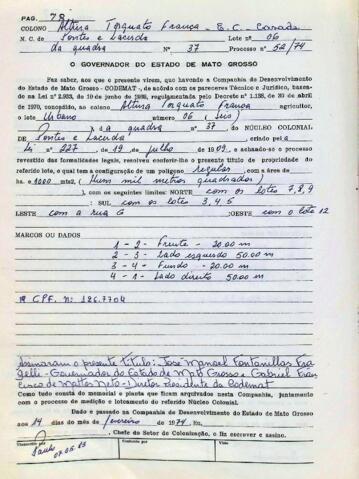 PAG. 78
COLONO Altura Torquato França - E. C. Casado
N. C. de Pontes e Lacerda Lote n° 06
da quadra N° 37 Processo n° 52/74
O GOVERNADOR DO ESTADO DE MATO GROSSO
Faz saber, aos que a presente virem, que havendo a Companhia de Desenvolvimento
do Estado de Mato Grosso - CODEMAT -, de acordo com os pareceres Técnico e Jurídico, basea-
do na Lei 2.933, de 19 de junho de 1986, regulamentada pelo Decreto N° 1.138, de 30 de abril
de 1970, concedido, ao colono Altura Torquato França agricultor,
o lote Urbano número 06 (seis)
da quadra n° 37. DO NÚCLEO COLONIAL
DE Pontes e Lacerda, criado pela
Lei n° 227, de 19 de julho de 1909, e achando-se o processo
revestido das formalidades legais, resolveu conferir-lhe o presente título de propriedade
do referido lote, o qual tem a configuração de um polígono regular, com a área de
há. e 1000 mts2, (Hum mil metros quadrados)
, com os seguintes limites: NORTE com os lotes 7,8,9
: SUL com os lotes 3, 4, 5
LESTE com a rua G :OESTE com o lote 12
MARCOS OU DADOS
1 - 2 - Frente - 20.00 m
2 - 3 - Lado esquerdo 50.00 m
3 - 4 - Fundo - 20.00 m
4 - 1 - Lado direito 50.00 m
C.P.F. N: 126.7704
Assinaram o presente título: José Manoel Fontanillas Fra
gelli - Governador do Estado de Mato Grosso e Gabriel Fran
cisco de Mattos Neto - Diretor Presidente da Codemat.
Como tudo consta do memorial e planta que ficam arquivados nesta Companhia, juntamente
com o processo de medição e lotamento do referido Núcleo Colonial.
Dado e passado na Companhia de Desenvolvimento do Estado de Mato Grosso
aos 14 dias do mês de fevereiro de 1974. Eu,
, Chefe do Setor de Colonização, o fiz escrever e assino.
Transcrito por Conferido por Visto
Paulo
07.05.83